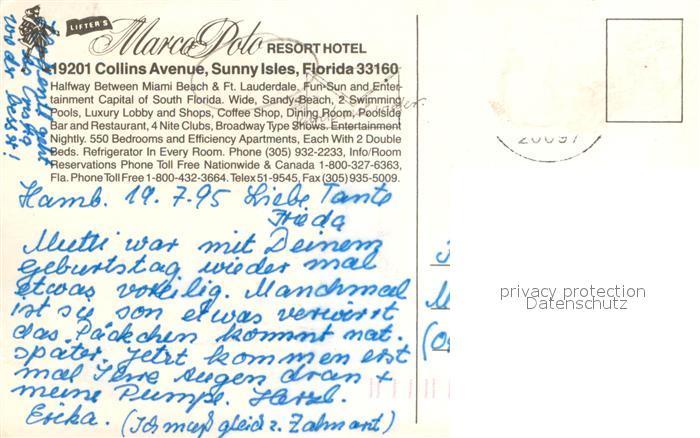 LIFTER'S
Marco Polo RESORT HOTEL
19201 Collins Avenue, Sunny Isles, Florida 33160
Halfway Between Miami Beach & Ft. Lauderdale, Fun-Sun and Enter-
tainment Capital of South Florida. Wide, Sandy Beach, 2 Swimming
Pools, Luxury Lobby and Shops, Coffee Shop, Dining Room, Poolside
Bar and Restaurant, 4 Nite Clubs, Broadway Type Shows. Entertainment
Nightly. 550 Bedrooms and Efficiency Apartments, Each With 2 Double
Beds. Refrigerator In Every Room. Phone (305) 932-2233, Info/Room
Reservations Phone Toll Free Nationwide & Canada 1-800-327-6363,
Fla. Phone Toll Free 1-800-432-3664. Telex 51-9545, Fax (305) 935-5009.
Hamb. 19.7.95 Liebe Tante
Frieda
Mutti war mit Deinem
Geburtstag wieder mal
etwas voreilig. Manchmal
ist sie son etwas verwirrt
das Päckchen kommt nat.
später. Jetzt kommen erst
mal Ihre Augen dran +
meine Pumpe. Herzl.
Erika. (Ich muß gleich z. Zahnarzt)
20097
privacy protection
Datenschutz